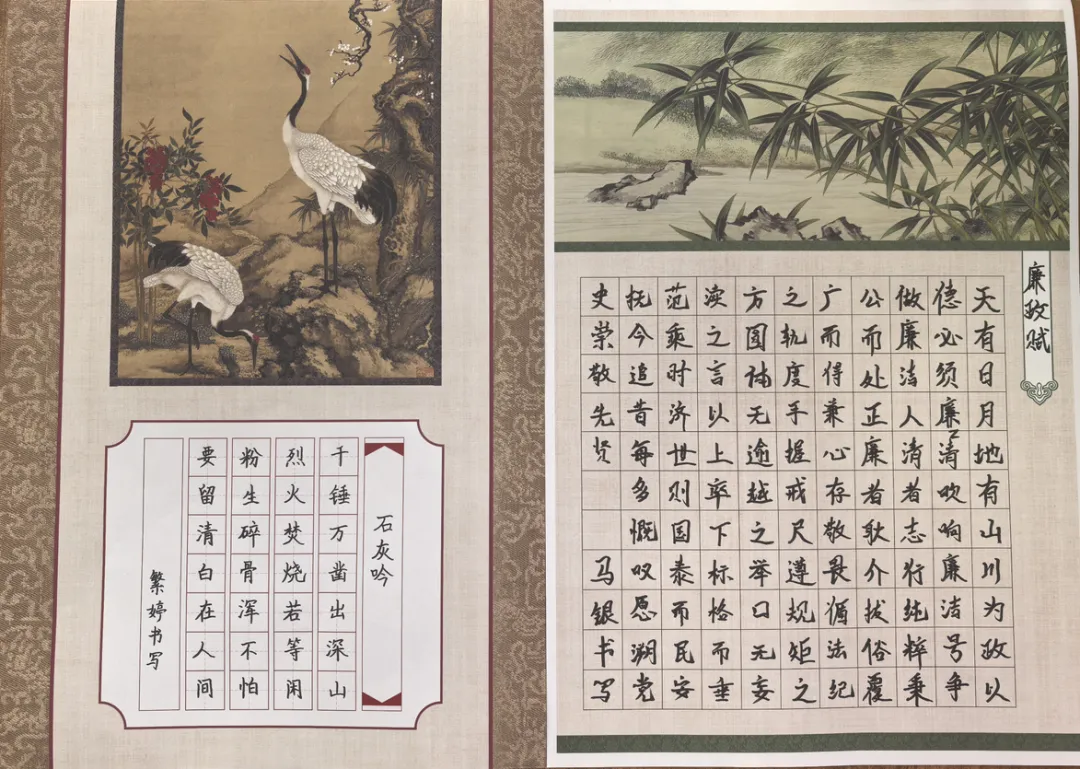 石灰吟
千锤万凿出深山
烈火焚烧若等闲
粉生碎骨浑不怕
要留清白在人间
繁婷书写
廉政赋
天有日月地有山川为政以
德必须廉清吹响廉洁号争
做廉洁人清者志行纯粹秉
公而处正廉者耿介拔俗覆
广而得兼心存敬畏循法纪
之轨度手握戒尺遵规矩之
方圆体无逾越之举口无妄
渎之言以上率下标格而垂
范乘时济世则国泰而民安
抚今追昔每多慨叹愿溯党
史崇敬先贤 马银书写